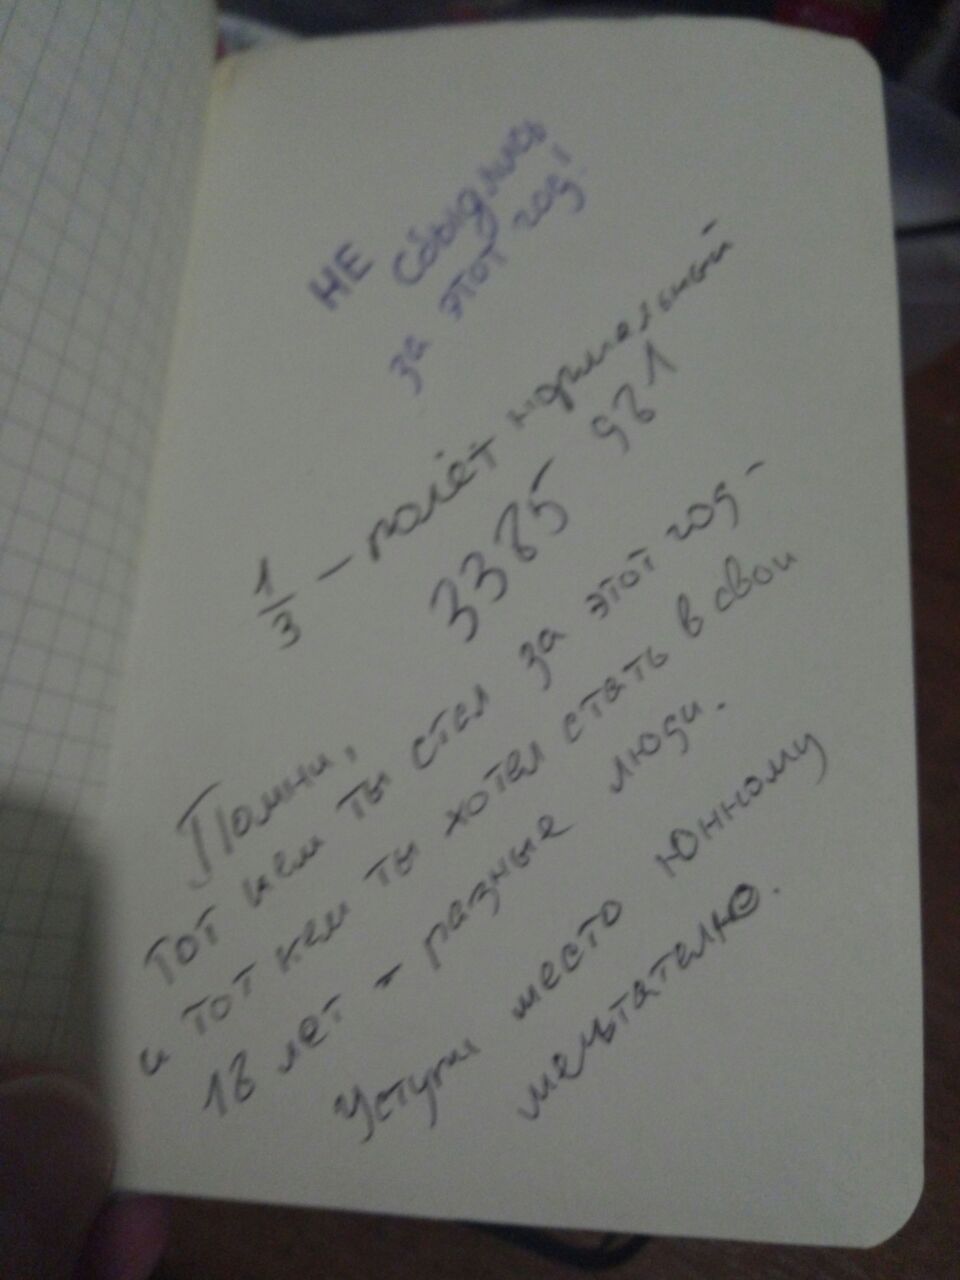 НЕ сбудлись
за этот год!
1/3 – полёт нормальный
3385 931
Помни,
тот кем ты стал за этот год -
и тот кем ты хотел стать в свои
18 лет - разные люди.
Уступи место Юнному
мечтателю.